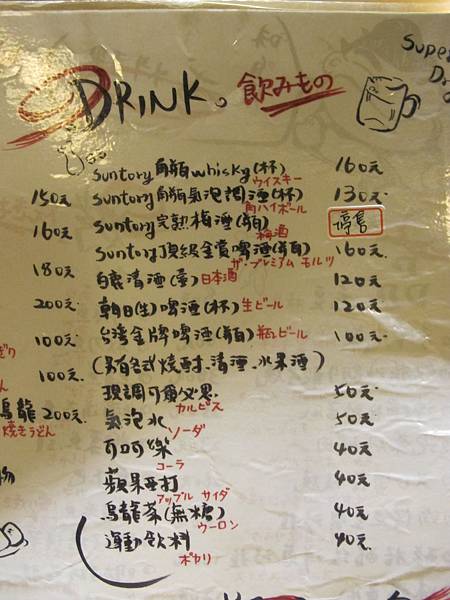 DRINK。飲みもの
Super
Dr
Suntory角瓶whisky(杯) 160元
ウイスキー
150元 Suntory角瓶氣泡調酒(杯) 130元
角ハイボール
160元 Suntory完熟梅酒(瓶) 停售
梅酒
Suntory頂級金賞啤酒(瓶) 160元
ザ・プレミアム モルツ
180元 白鹿清酒(壺) 日本酒 120元
200元 朝日(生)啤酒(杯)生ビール 120元
100元 台灣金牌啤酒(瓶)瓶ビール 100元
100元 (另有各式燒酎、清酒、水果酒)
現調可爾必思 50元
カルピス
烏龍 200元 氣泡水 50元
焼きうどん ソーダ
可口可樂 40元
コーラ
蘋果西打 40元
アップル サイダ
烏龍茶(無糖) 40元
ウーロン
運動飲料 40元
ポカリ
物